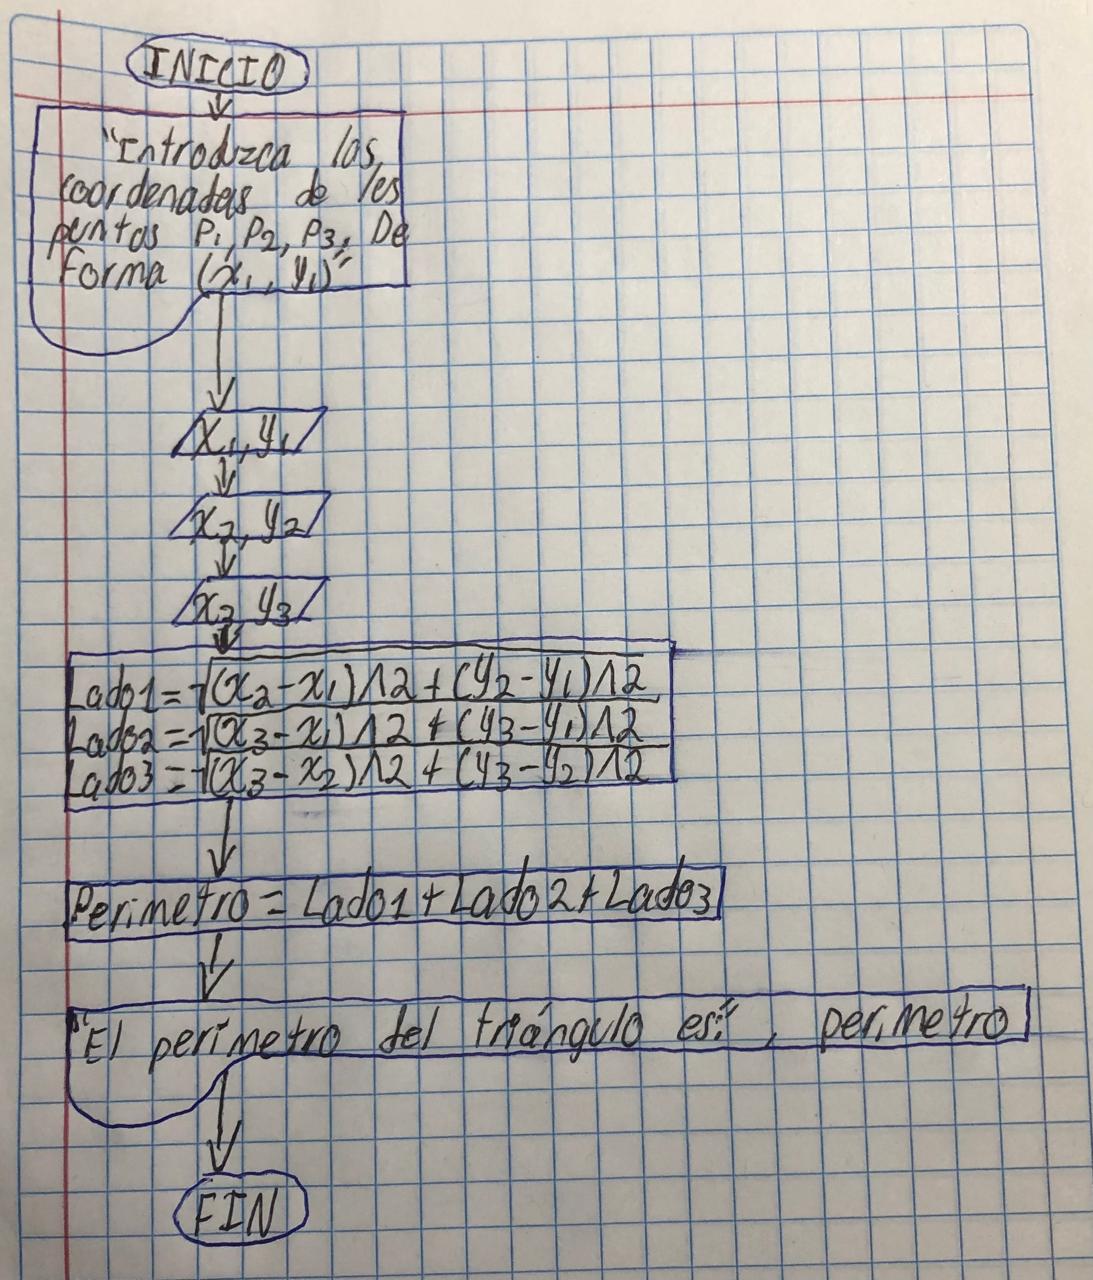 INICIO
"Introduzca las
coordenadas de les
puntos P₁, P₂, P₃. De
forma (x₁, y₁)"
x₁, y₁
x₂, y₂
x₃, y₃
Lado1=√(x₂-x₁)∧2+(y₂-y₁)∧2
Lado2=√(x₃-x₁)∧2+(y₃-y₁)∧2
Lado3=√(x₃-x₂)∧2+(y₃-y₂)∧2
Perimetro=Lado1+Lado2+Lado3
"El perímetro del triángulo es:", perimetro
FIN